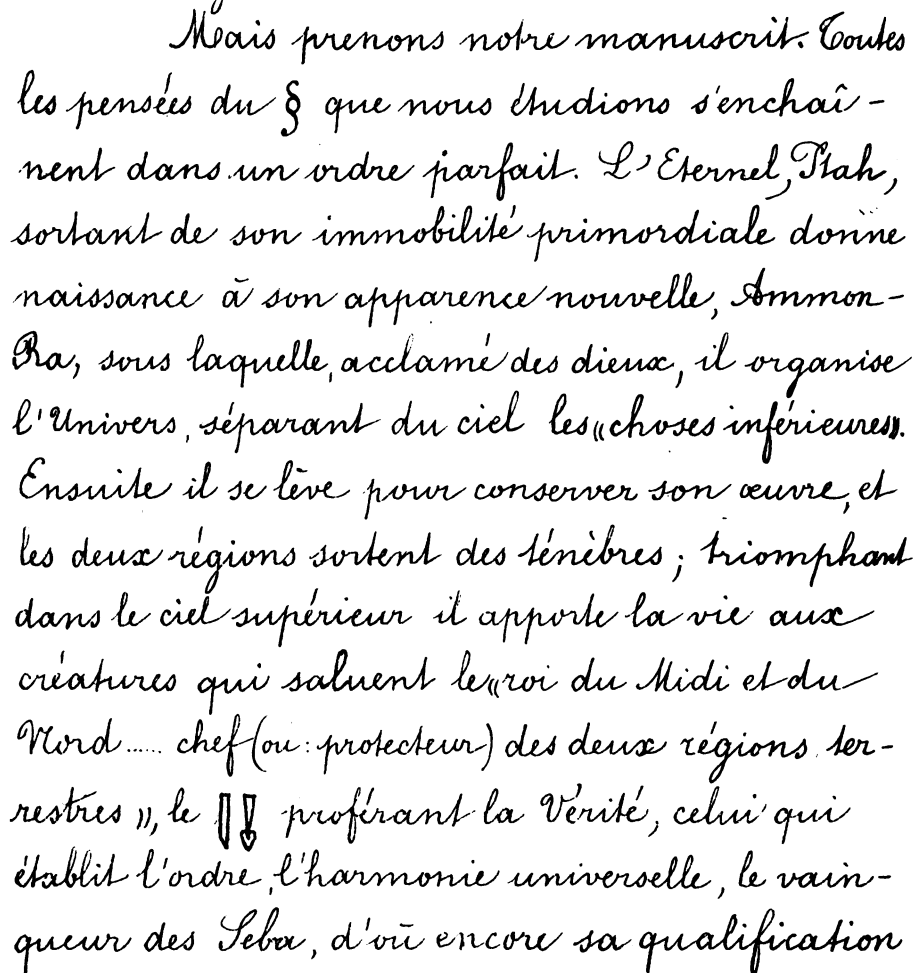 Mais prenons notre manuscrit. Toutes
les pensées du § que nous étudions s'enchaî-
nent dans un ordre parfait. L'Eternel, Ptah,
sortant de son immobilité primordiale donne
naissance à son apparence nouvelle, Ammon-
Ra, sous laquelle, acclamé des dieux, il organise
l'Univers, séparant du ciel les «choses inférieures».
Ensuite il se lève pour conserver son œuvre, et
les deux régions sortent des ténèbres ; triomphant
dans le ciel supérieur il apporte la vie aux
créatures qui saluent le «roi du Midi et du
Nord ..... chef (ou : protecteur) des deux régions ter-
restres », le proférant la Vérité, celui qui
établit l'ordre, l'harmonie universelle, le vain-
queur des Seba, d'où encore sa qualification